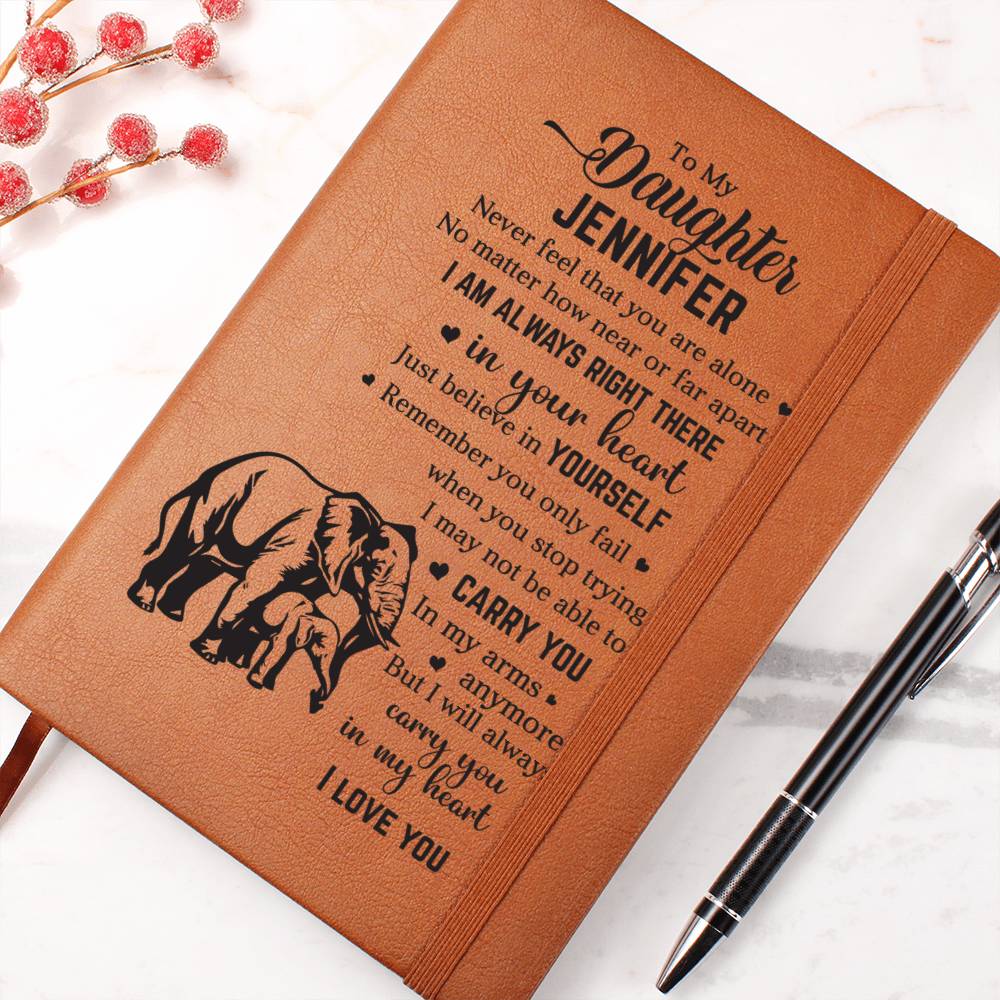 To My
Daughter
JENNIFER
Never feel that you are alone
No matter how near or far apart
I AM ALWAYS RIGHT THERE
in your heart
Just believe in YOURSELF
Remember you only fail
when you stop trying
I may not be able to
CARRY YOU
In my arms
anymore
But I will alway
carry you
in my heart
I LOVE YOU